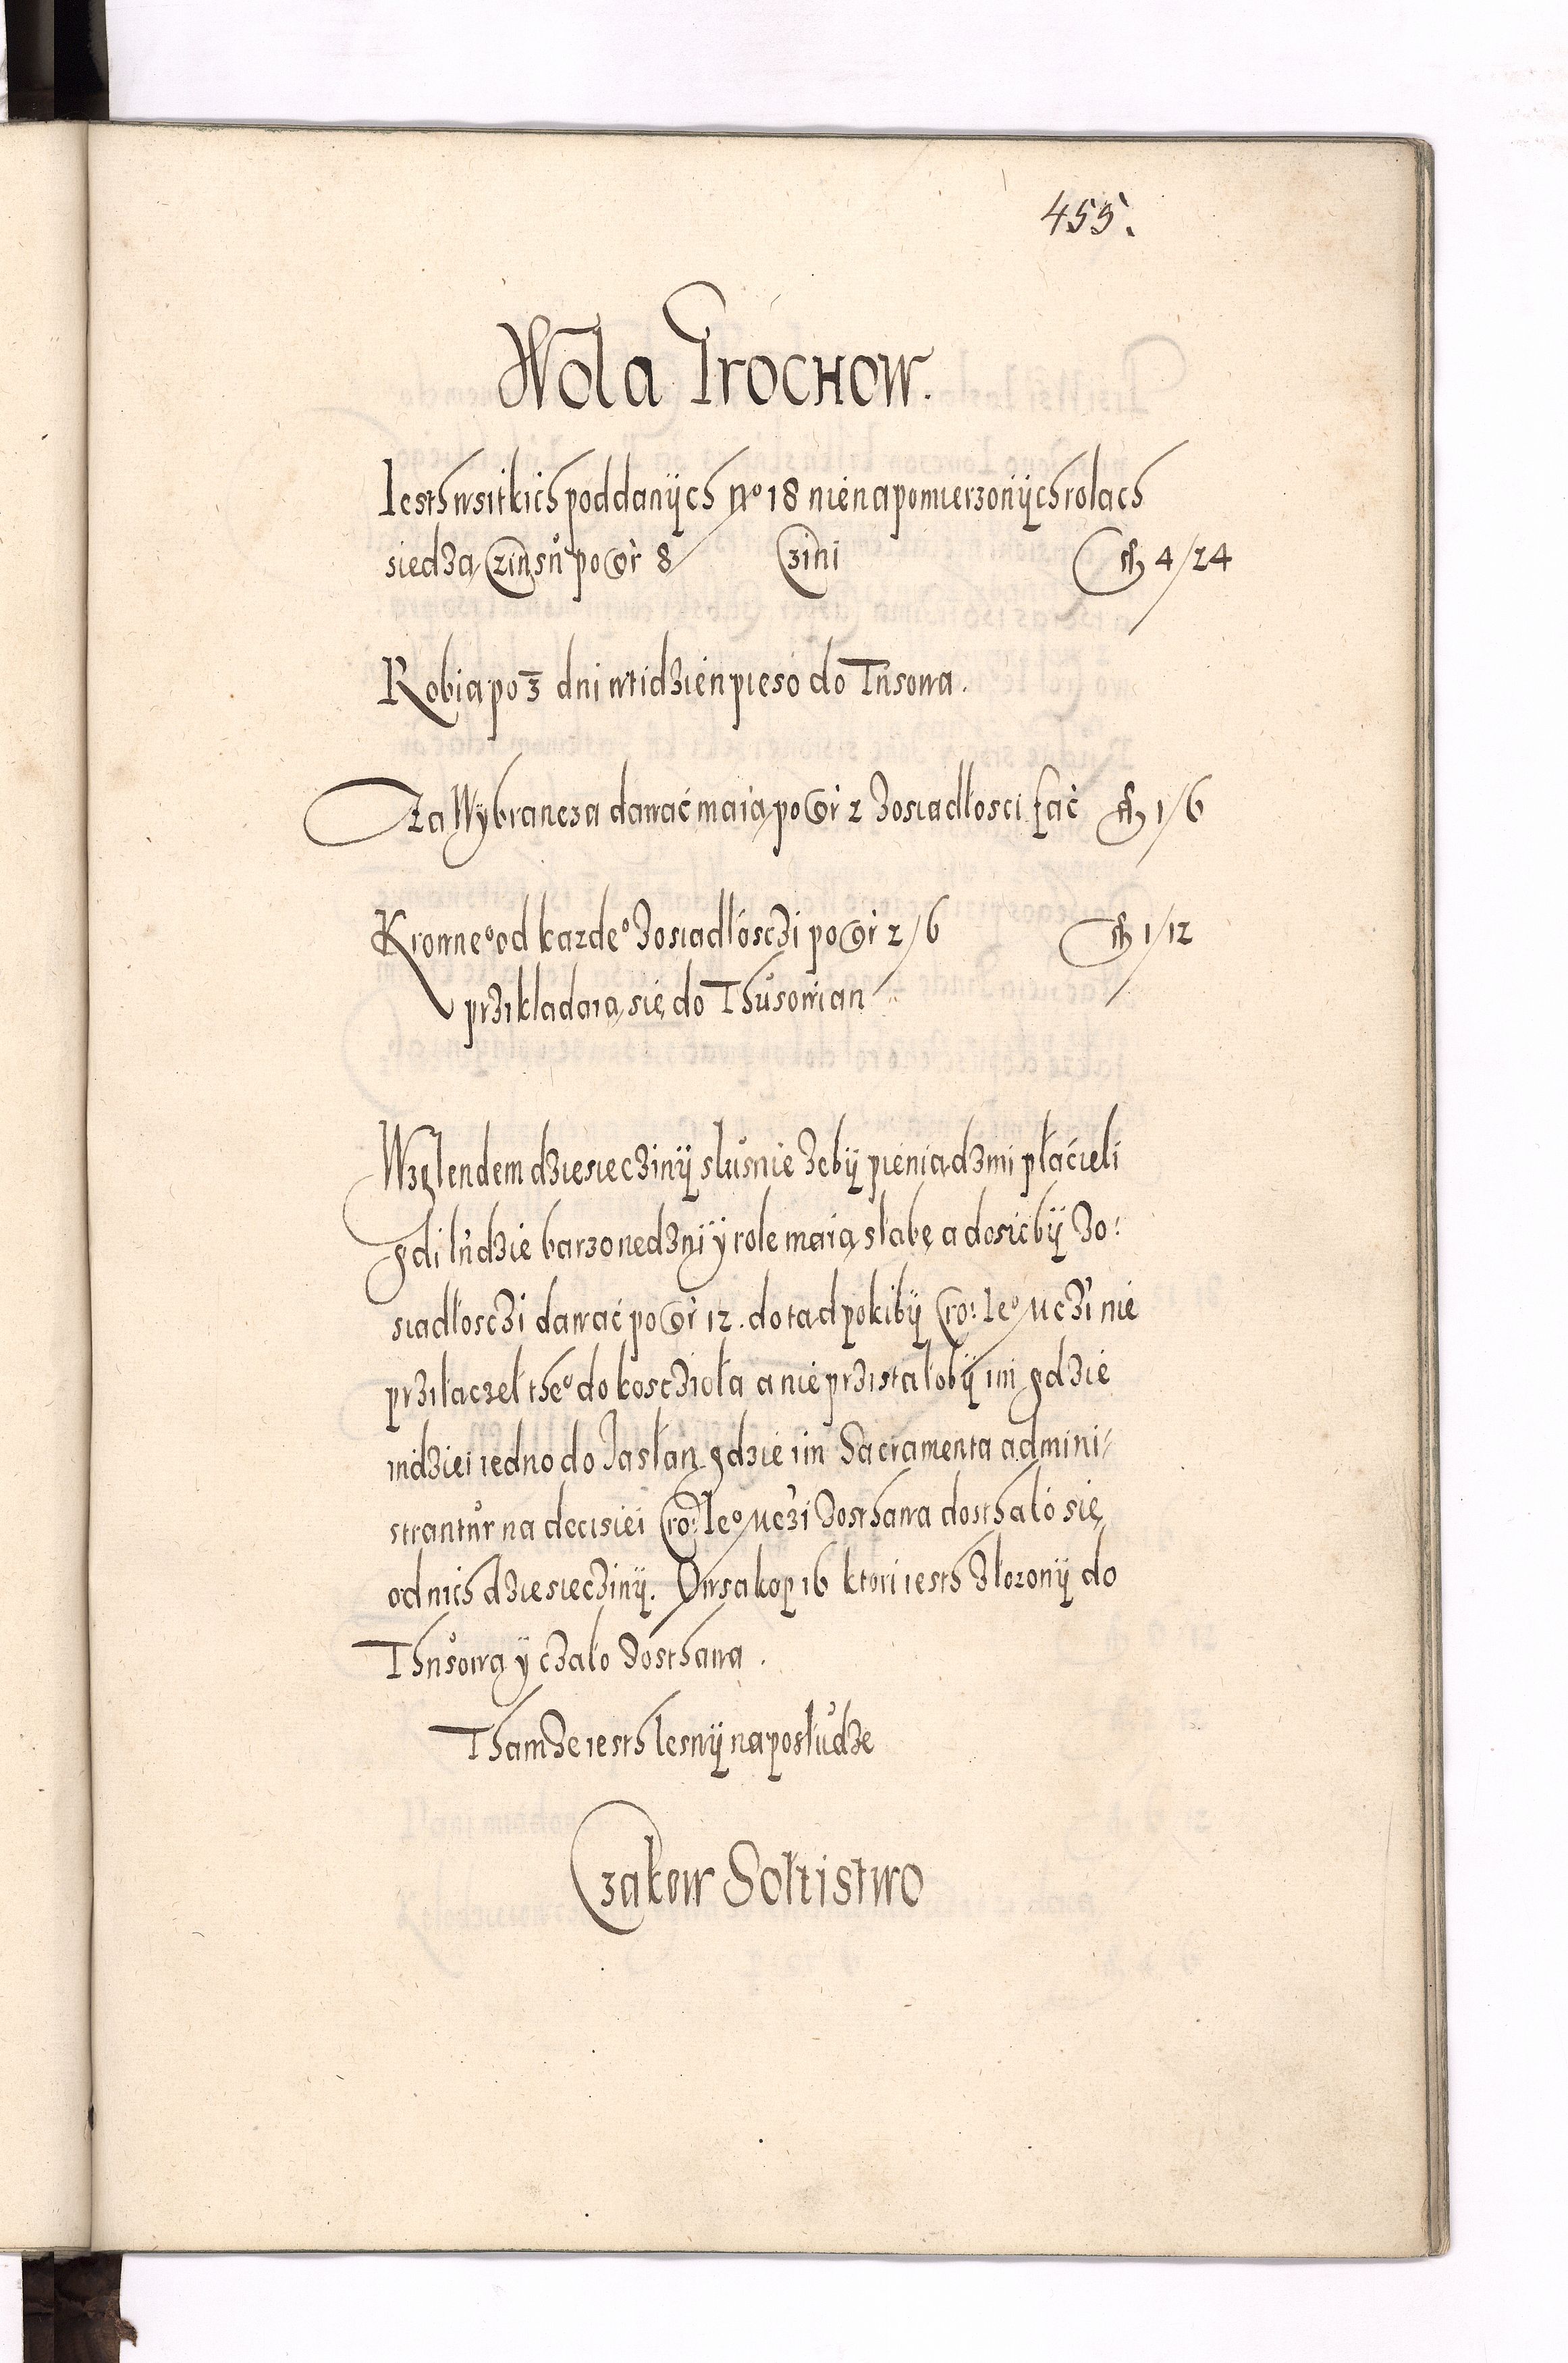 455.
Wola Grochow.
Iesth wsitkich poddanÿch No 18 nie na pomierzonÿch rolach
siedza Czinsu po gr 8 Czini fl 4/24
Robia po 3 dni w tidzien pieso do Tusowa.
Za Wÿbrancza dawać maia po gr 2 z osiadłosci fać fl 1/6
Krowneo od kazdeo z osiadłosczi po gr 2/6 fl 1/12
przikladaią się do Thusowian
Wzglendem dziesieczinÿ slusnie zebÿ pieniądzmi płacieli
gdi ludzie barzo nedznÿ ÿ role maią słabe a dosicbÿ z o:
siadłosczi dawać po gr 12. dotąd pokibÿ Cro: Ieo Mczi nie
prziłaczeł theo do koscziola a nie przistałobÿ im gdzie
indziei iedno do Jaslan gdzie im Sacramenta admini-
strantur na decisiei Cro: Ieo Mczi zosthawa dosthało się
od nich dziesiecziny. Owsa kop 16 ktori iesth złozonÿ do
Thusowa ÿ czało zosthawa.
Thamze iesth lesnÿ na posłudze
Czakow Sołtistwo